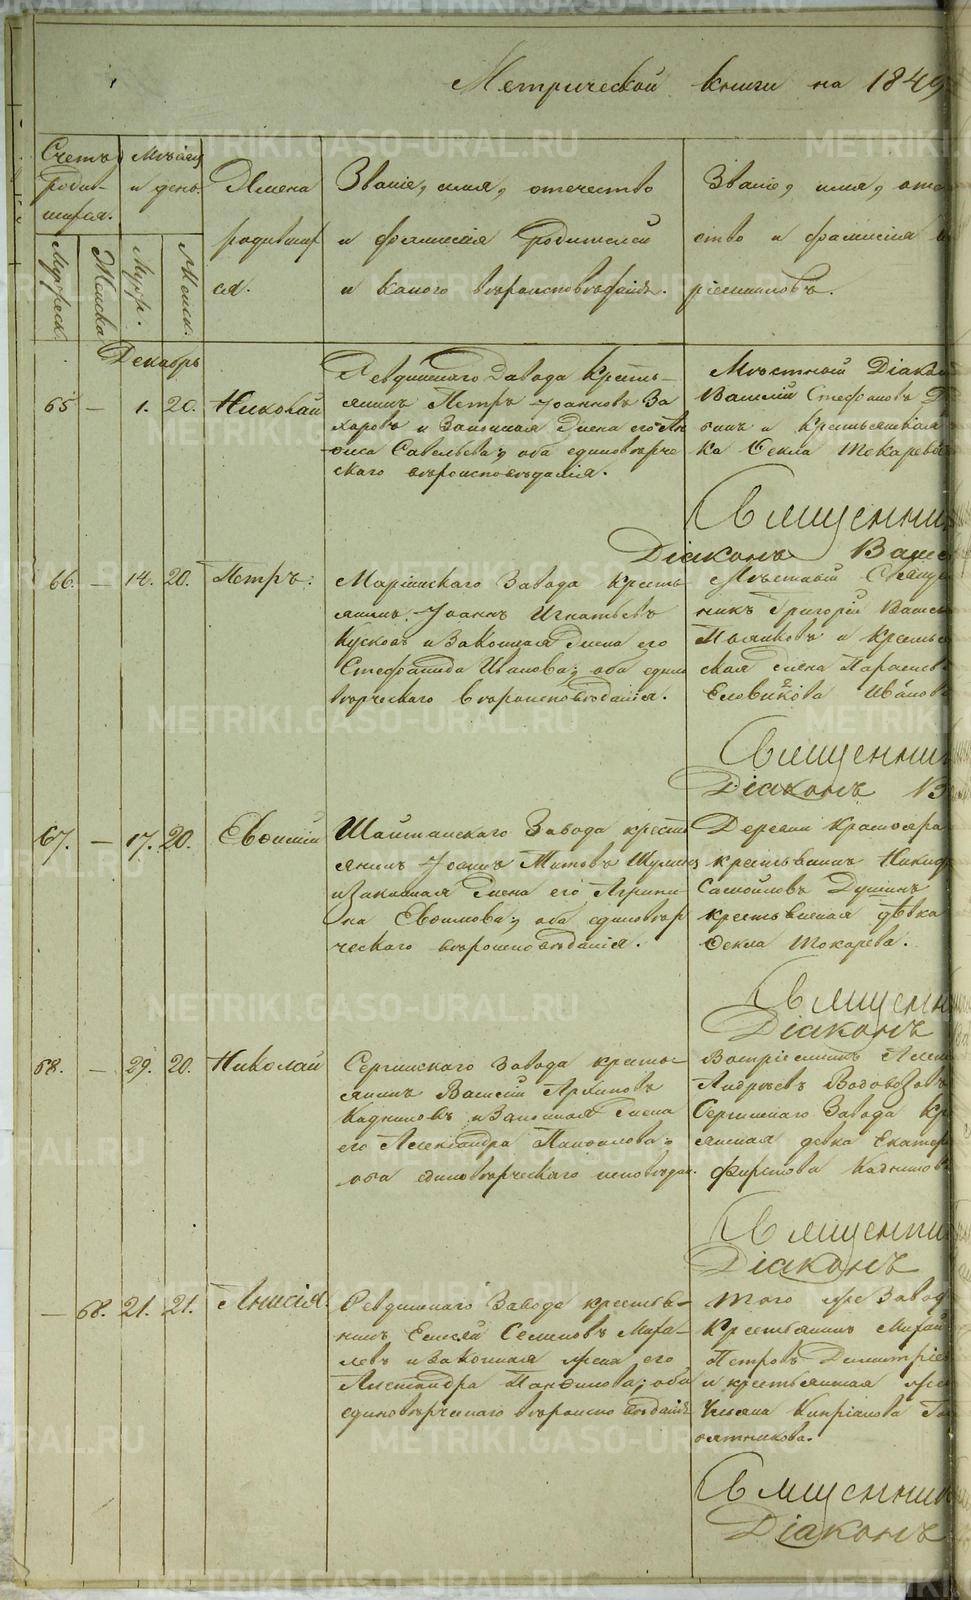 Метрической книги на 1849
Счетъ родив-
шихся.
Мужеск.
Женска
Мѣсяцъ
и день.
Мужр.
Женск.
Имена
родивших
ся.
Званіе, имя, отечество
и фамилія Родителей
и какого вѣроисповѣданія.
Званіе, имя, оте
ство и фамилія
ріемниковъ.
Декабрь
65 — 1. 20. Николай
Ревдинскаго Завода Кресть-
янинъ Петръ Іоанновъ За
харовъ и Законная Жена его Ан
фиса Савельева, оба единовѣрче
скаго вѣроисповѣданія.
Мѣстный Діакон
Василій Стефановъ
и Крестьянская
ка Ѳекла Токарева
Священни
Діаконъ Васи
66. — 14. 20. Петръ.
Маріинскаго Завода Кресть
янинъ Іоаннъ Игнатьевъ
Кусковъ и Законная Жена его
Стефанида Иванова, оба едино
вѣрческаго вѣроисповѣданія.
Мѣстный Священ
никъ Григорій Василь
и Кресть
ская Жена Параскев
Еловикова Иванова
Священни
Діаконъ В
67. — 17. 20. Евѳимій
Шайтанскаго Завода кресть
янинъ Іоаннъ Титовъ
и Законная Жена его Агрипи
на Евѳимова, оба единовѣр
ческаго вѣроисповѣданія.
Деревни Краснояра
крестьянинъ Никиф
Самойловъ Душинъ
крестьянская дѣвка
Ѳекла Токарева.
Священн
Діаконъ
68. — 29. 20. Николай
Сергинскаго Завода кресть-
янинъ Василій Архиповъ
Кадниковъ и Законная Жена
его Александра Панфилова,
оба единовѣрческаго исповѣдан.
Воспріемникъ
Андреевъ Водовозовъ
Сергинскаго Завода Кр
янская девка Екатер
фирсова Кадникова
Священни
Діаконъ
— 68. 21. 21. Анисія.
Ревдинскаго Завода крестья-
нинъ Елисей Семеновъ Мага-
левъ и Законная жена его
Александра Панфилова, оба
единовѣрческаго вѣроисповѣданія
Того же Завод
Крестьянинъ Михаи
Петровъ Димитріев
и крестьянская же
Ульяна Кипріанова
Священник
Діаконъ
METRIKI.GASO-URAL.RU